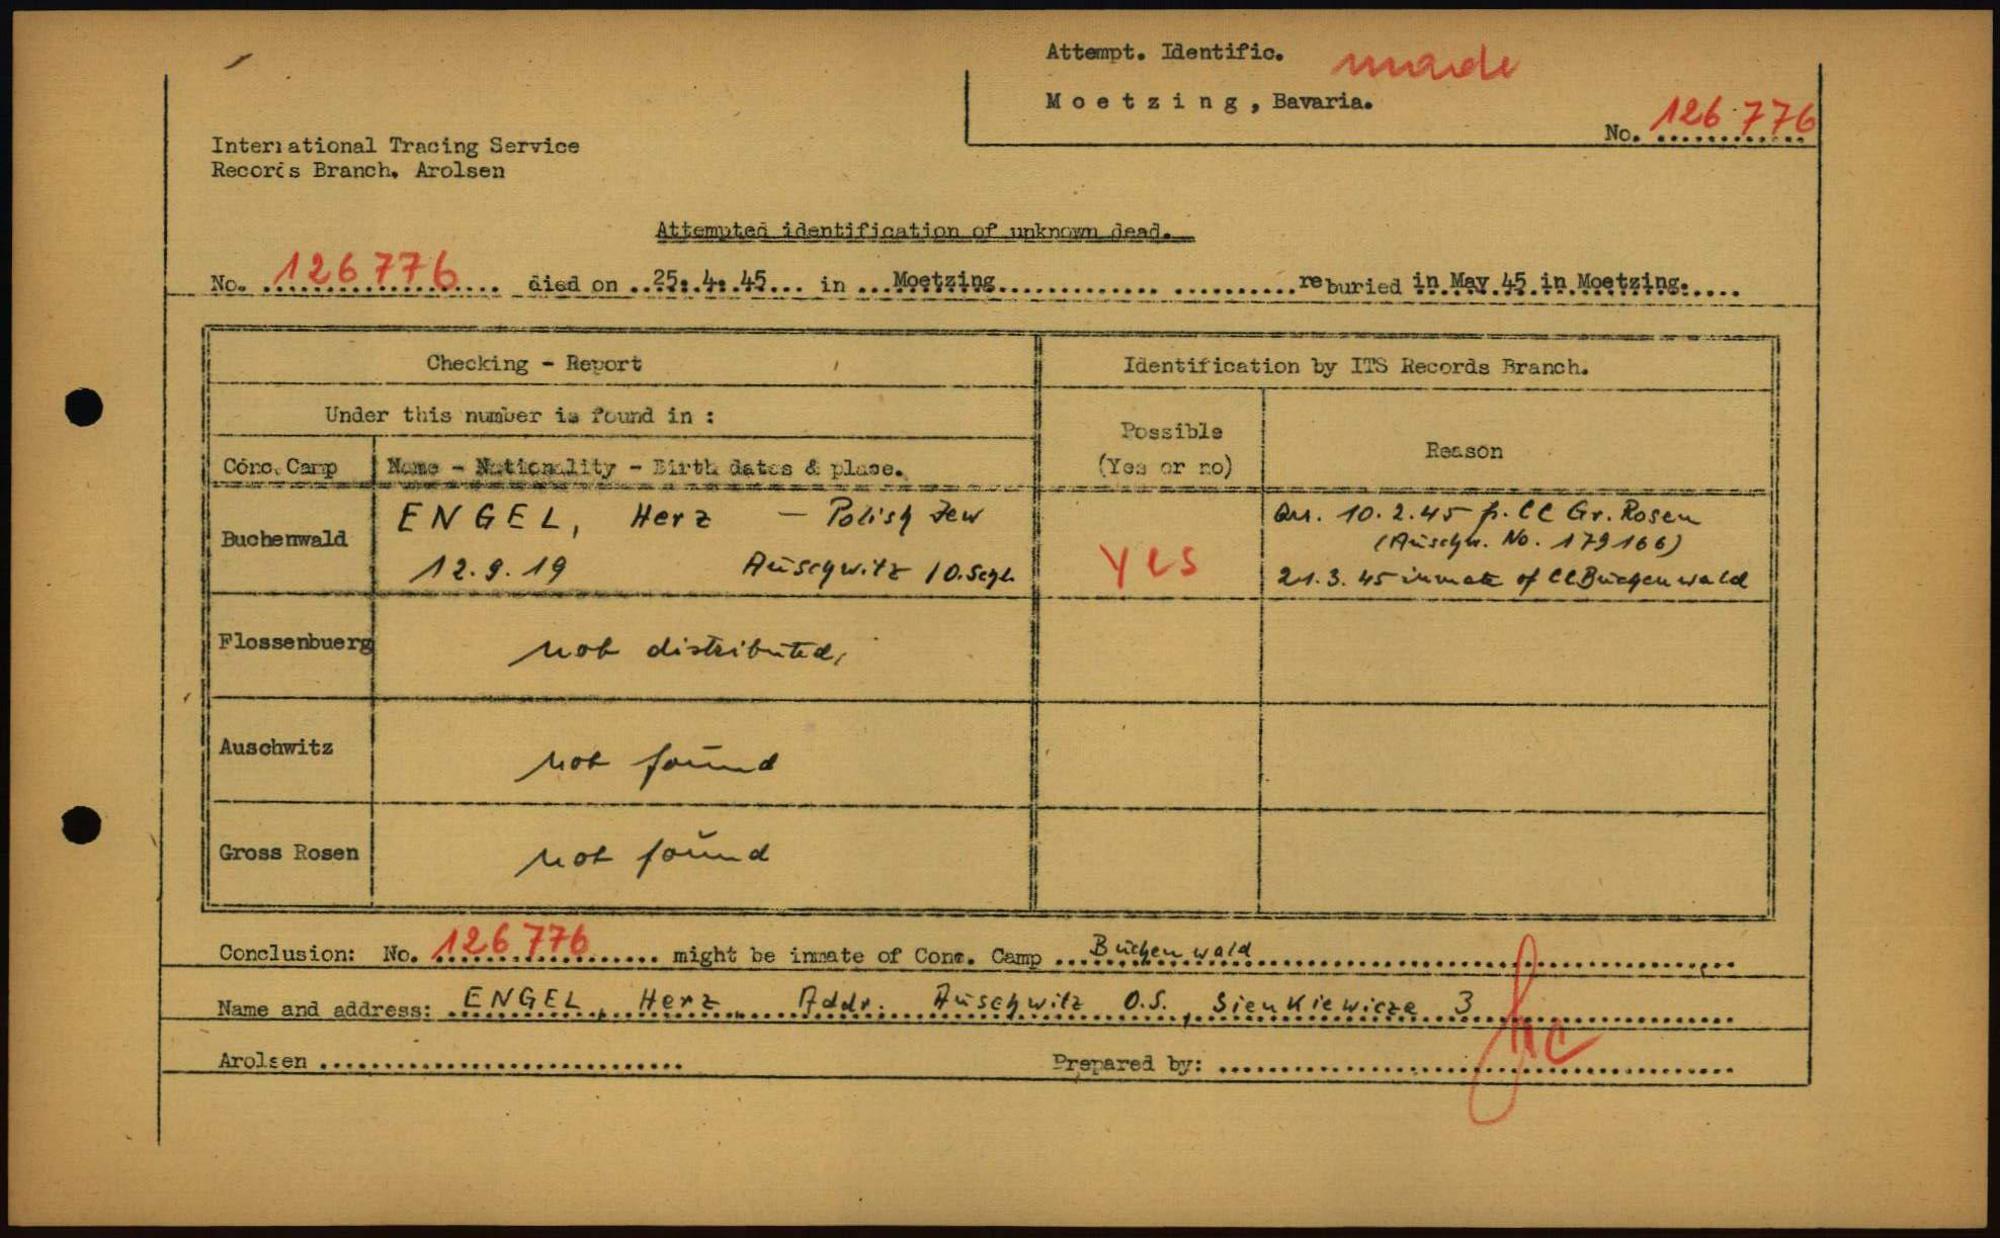 Attempt. Identific. made
Moetzing, Bavaria.
No. 126 776
International Tracing Service
Records Branch. Arolsen
Attempted identification of unknown dead.
No. 126776 died on 25. 4. 45 in Moetzing reburied in May 45 in Moetzing.
Checking - Report
Identification by ITS Records Branch.
Under this number is found in :
Conc. Camp
Name - Nationality - Birth dates & place.
Possible
(Yes or no)
Reason
Buchenwald
ENGEL, Herz - Polish Jew
12.9.19 Auschwitz /O.Schl.
yes
Arr. 10.2.45 fr. CC Gr. Rosen
(Auschw. No. 179166)
21.3.45 inmate of CC Buchenwald
Flossenbuerg
not distributed,
Auschwitz
not found
Gross Rosen
not found
Conclusion: No. 126776 might be inmate of Conc. Camp Buchenwald
Name and address: ENGEL, Herz Addr. Auschwitz O.S., Sienkiewicze 3
Arolsen
Prepared by: